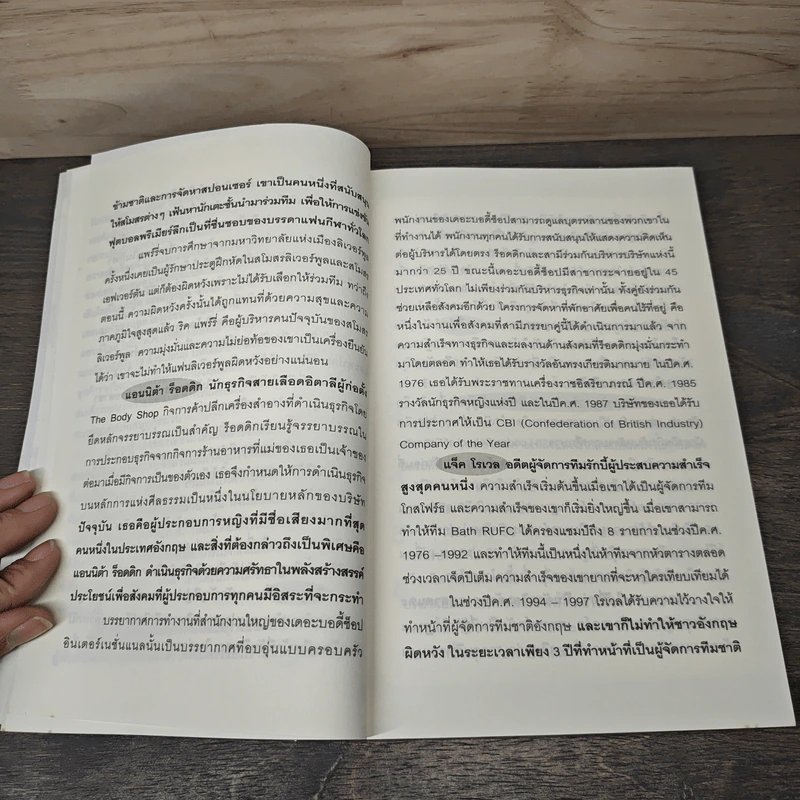 ข้ามชาติและการจัดหาสปอนเซอร์ เขาเป็นคนหนึ่งที่สนับสนุน
ให้สโมสรต่างๆ เฟ้นหานักเตะชั้นนำมาร่วมทีม เพื่อให้การแข่งขัน
ฟุตบอลพรีเมียร์ลีกเป็นที่ชื่นชอบของบรรดาแฟนกีฬาทั่วโลก
แพร์รี่จบการศึกษาจากมหาวิทยาลัยแห่งเมืองลิเวอร์พูล
ครั้งหนึ่งเคยเป็นผู้รักษาประตูฝึกหัดในสโมสรลิเวอร์พูลและสโมสร
เอฟเวอร์ตัน แต่ก็ต้องผิดหวังเพราะไม่ได้รับเลือกให้ร่วมทีม ทว่าถึง
ตอนนี้ ความผิดหวังครั้งนั้นได้ถูกแทนที่ด้วยความสุขและความ
ภาคภูมิใจสูงสุดแล้ว ริค แพร์รี่ คือผู้บริหารคนปัจจุบันของสโมสร
ลิเวอร์พูล ความมุ่งมั่นและความไม่ย่อท้อของเขาเป็นเครื่องยืนยัน
ได้ว่า เขาจะไม่ทำให้แฟนลิเวอร์พูลผิดหวังอย่างแน่นอน
แอนนิต้า ร็อดดิก นักธุรกิจสายเลือดอิตาลีผู้ก่อตั้ง
The Body Shop กิจการค้าปลีกเครื่องสำอางที่ดำเนินธุรกิจโดย
ยึดหลักจรรยาบรรณเป็นสำคัญ ร็อดดิกเรียนรู้จรรยาบรรณใน
การประกอบธุรกิจจากกิจการร้านอาหารที่แม่ของเธอเป็นเจ้าของ
ต่อมาเมื่อมีกิจการเป็นของตัวเอง เธอจึงกำหนดให้การดำเนินธุรกิจ
บนหลักการแห่งศีลธรรมเป็นหนึ่งในนโยบายหลักของบริษัท
ปัจจุบัน เธอคือผู้ประกอบการหญิงที่มีชื่อเสียงมากที่สุด
คนหนึ่งในประเทศอังกฤษ และสิ่งที่ต้องกล่าวถึงเป็นพิเศษคือ
แอนนิต้า ร็อดดิก ดำเนินธุรกิจด้วยความศรัทธาในพลังสร้างสรรค์
ประโยชน์เพื่อสังคมที่ผู้ประกอบการทุกคนมีอิสระที่จะกระทำ
บรรยากาศการทำงานที่สำนักงานใหญ่ของเดอะบอดี้ช็อป
อินเตอร์เนชั่นแนลนั้นเป็นบรรยากาศที่อบอุ่นแบบครอบครัว
พนักงานของเดอะบอดี้ช็อปสามารถดูแลบุตรหลานของพวกเขาใน
ที่ทำงานได้ พนักงานทุกคนได้รับการสนับสนุนให้แสดงความคิดเห็น
ต่อผู้บริหารได้โดยตรง ร็อดดิกและสามีร่วมกันบริหารบริษัทแห่งนี้
มากว่า 25 ปี ขณะนี้เดอะบอดี้ช็อปมีสาขากระจายอยู่ใน 45
ประเทศทั่วโลก ไม่เพียงร่วมกันบริหารธุรกิจเท่านั้น ทั้งคู่ยังร่วมกัน
ช่วยเหลือสังคมอีกด้วย โครงการจัดหาที่พักอาศัยเพื่อคนไร้ที่อยู่ คือ
หนึ่งในงานเพื่อสังคมที่สามีภรรยาคู่นี้ได้ดำเนินการมาแล้ว จาก
ความสำเร็จทางธุรกิจและผลงานด้านสังคมที่ร็อดดิกมุ่งมั่นกระทำ
มาโดยตลอด ทำให้เธอได้รับรางวัลอันทรงเกียรติมากมาย ในปีค.ศ.
1976 เธอได้รับพระราชทานเครื่องราชอิสริยาภรณ์ ปีค.ศ. 1985
รางวัลนักธุรกิจหญิงแห่งปี และในปีค.ศ. 1987 บริษัทของเธอได้รับ
การประกาศให้เป็น CBI (Confederation of British Industry)
Company of the Year
แจ็ค โรเวล อดีตผู้จัดการทีมรักบี้ผู้ประสบความสำเร็จ
สูงสุดคนหนึ่ง ความสำเร็จเริ่มต้นขึ้นเมื่อเขาได้เป็นผู้จัดการทีม
โกสฟอร์ธ และความสำเร็จของเขาก็เริ่มยิ่งใหญ่ขึ้น เมื่อเขาสามารถ
ทำให้ทีม Bath RUFC ได้ครองแชมป์ถึง 8 รายการในช่วงปีค.ศ.
1976 –1992 และทำให้ทีมนี้เป็นหนึ่งในห้าทีมจากหัวตารางตลอด
ช่วงเวลาเจ็ดปีเต็ม ความสำเร็จของเขายากที่จะหาใครเทียบเทียมได้
ในช่วงปีค.ศ. 1994 – 1997 โรเวลได้รับความไว้วางใจให้
ทำหน้าที่ผู้จัดการทีมชาติอังกฤษ และเขาก็ไม่ทำให้ชาวอังกฤษ
ผิดหวัง ในระยะเวลาเพียง 3 ปีที่ทำหน้าที่เป็นผู้จัดการทีมชาติ